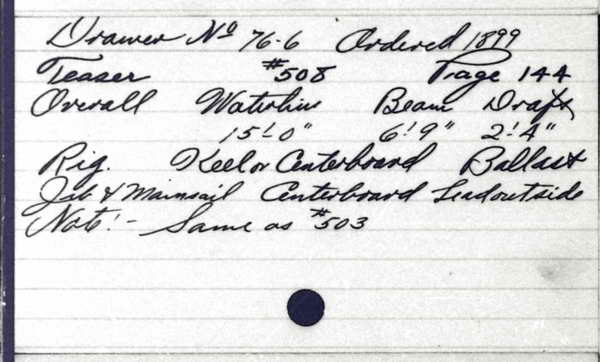 Drawer No 76-6 Ordered 1899
Teaser #508 Page 144
Overall Waterline Beam Draft
15'0" 6'9" 2'4"
Rig. Keel or Centerboard Ballast
Jib & Mainsail Centerboard Lead outside
Note:- Same as #503